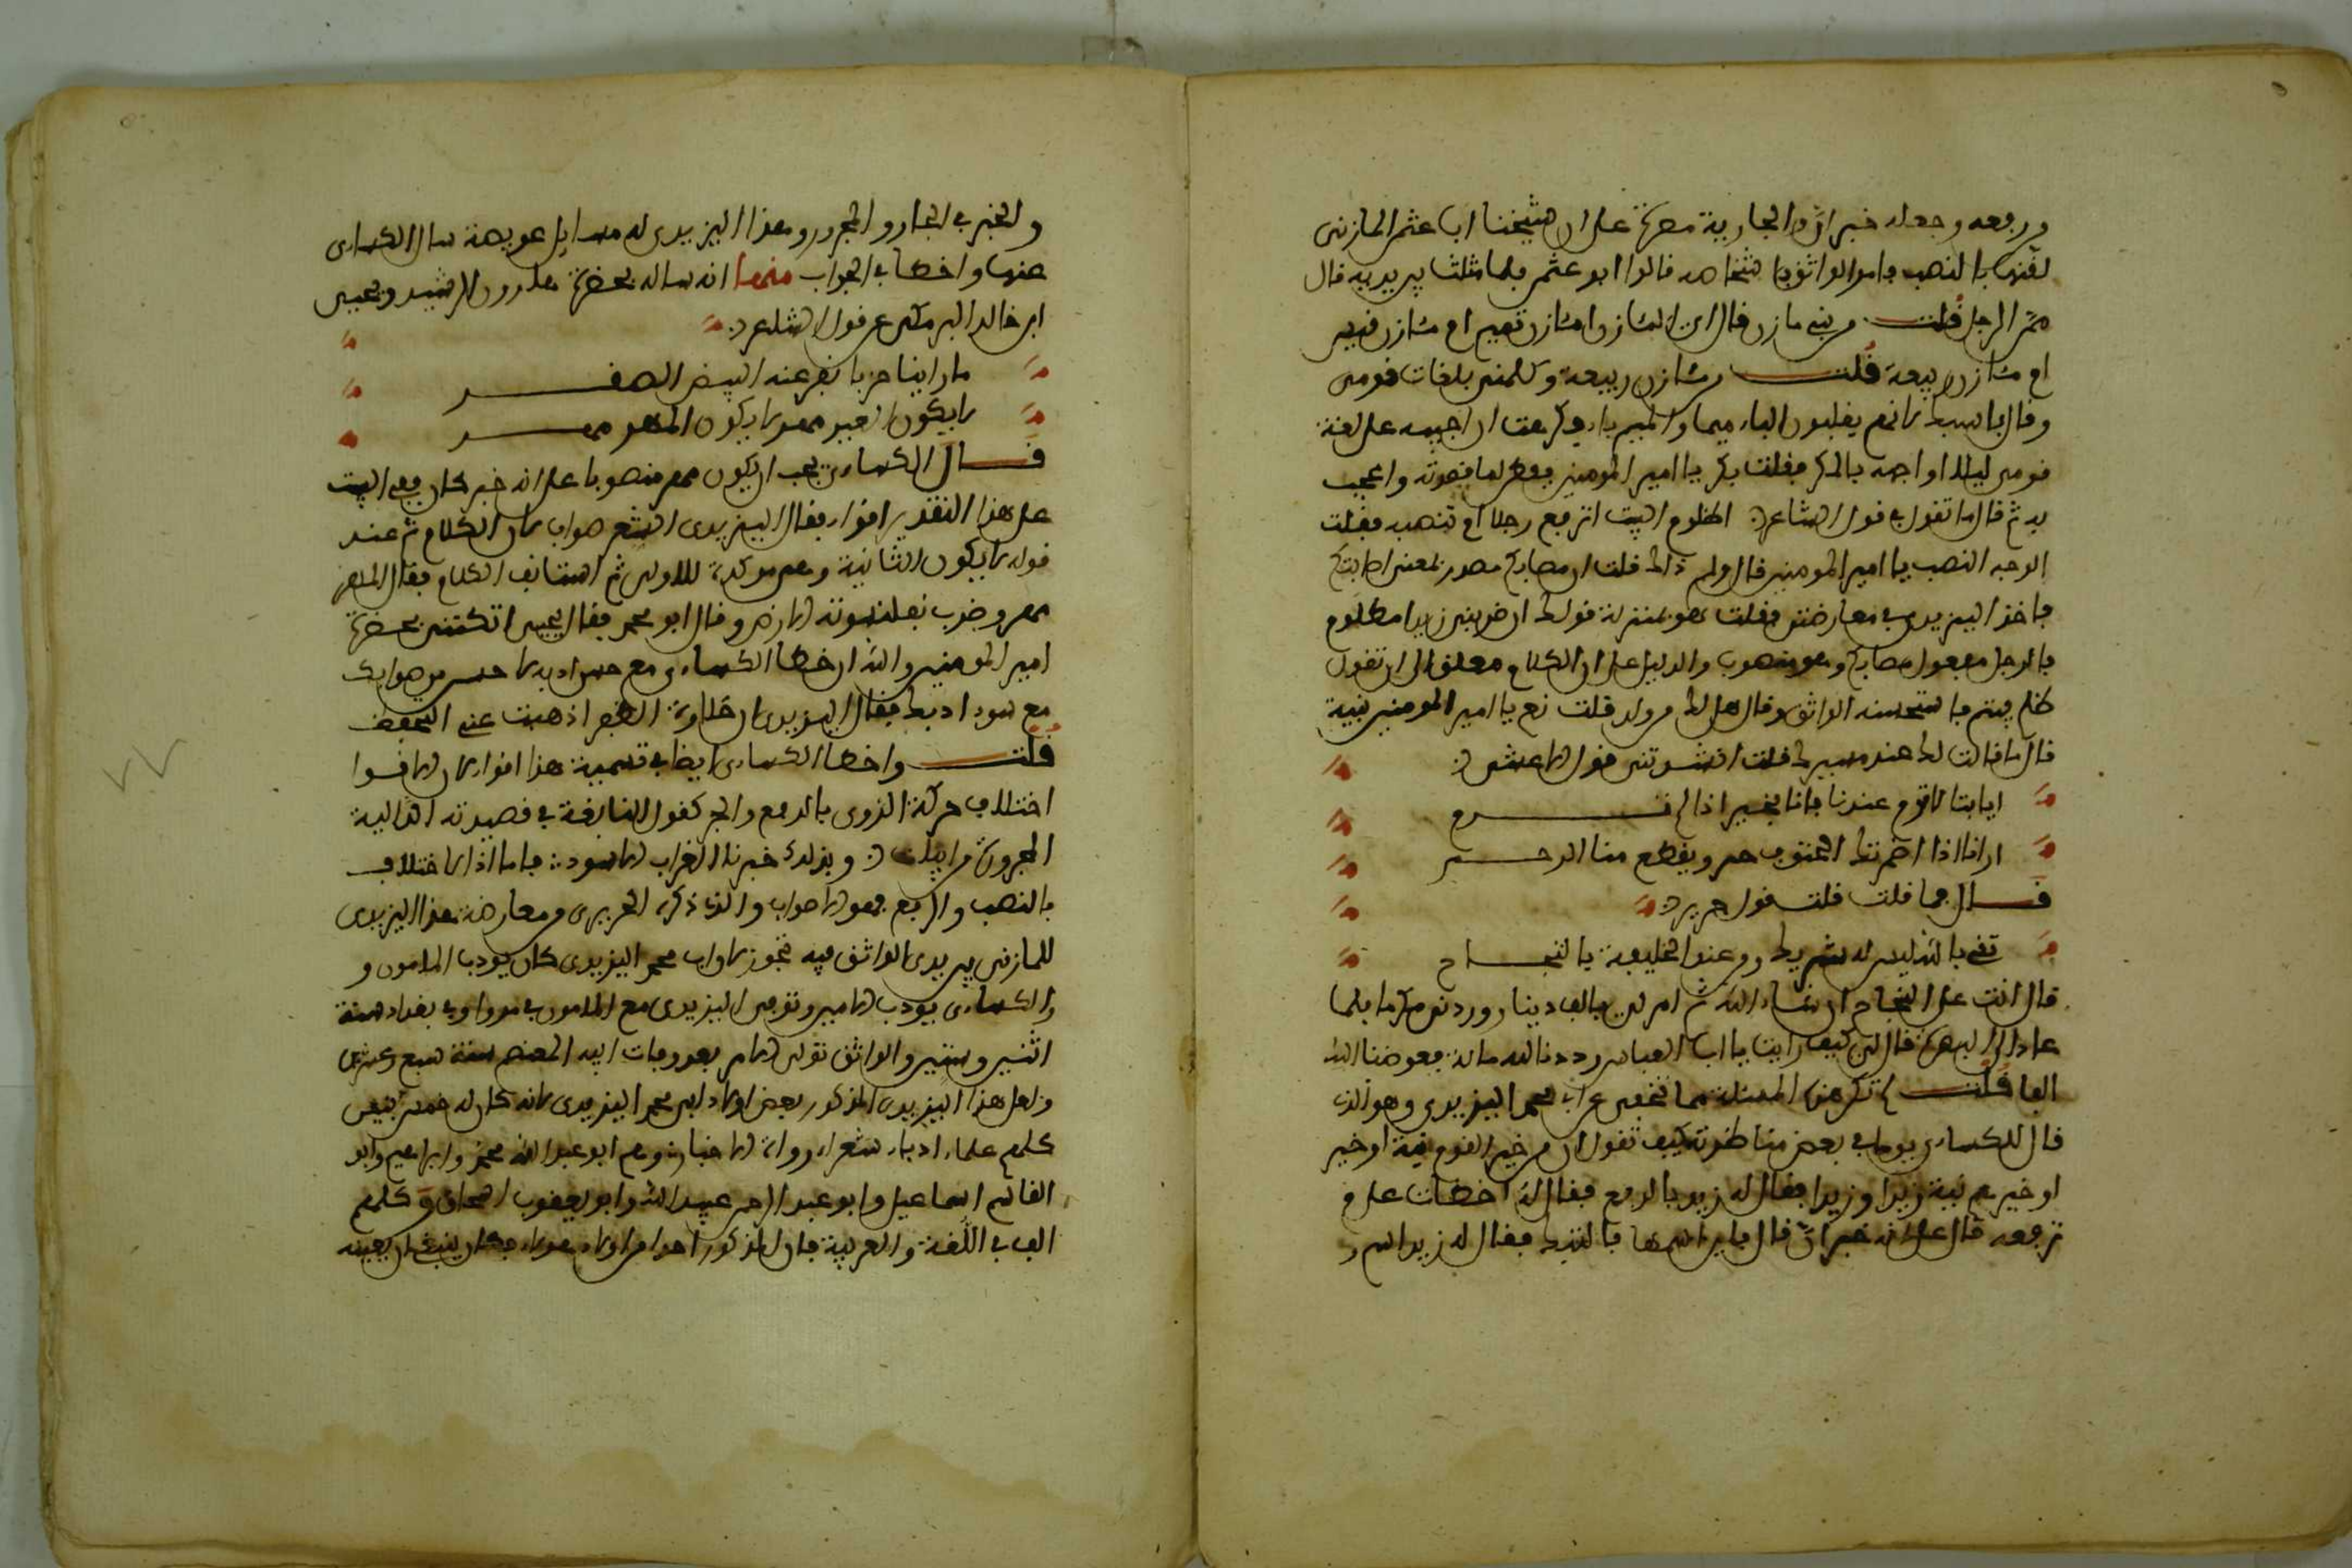 ورفعه وجعله خبر ان والجارية مصرة على ان شيخنا ابا عثمن المازنى
لقنها بالنصب فامر الواثق باشخاصه قالوا ابو عثمن فلما مثلت بين يديه قال
ممن الرجل قلت من بنى مازن قال اى الموازن امازن تميم ام مازن قيس
ام مازن ربيعة قلت من مازن ربيعة وكلمنى بلغات قومى
وقال با اسبك لانهم يقلبون الباء ميما والميم باء فكرهت ان اجيبه على لغة
قومى ليلا اواجهه بالمكر فقلت بكر يا امير المومنين ففطن لما قصدته واعجب
به ثم قال ما تقول فى قول الشاعر اظلوم البيت اترفع رجلا ام تنصبه فقلت
الوجه النصب يا امير المومنين قال ولم ذلك قلت ان مصابكم مصدر بمعنى اصابتكم
فاخذ اليزيدى فى معارضتى فقلت هو بمنزلة قولك ان ضربك زيدا مظلوم
فالرجل مفعول مصابكم وهو منصوب والدليل عليه ان الكلام معلق الى ان تقول
ظلم فيتم فاستحسنه الواثق وقال هل لك من ولد قلت نعم يا امير المومنين بنية
قال ما قالت لك عند مسيرك قلت انشدتنى قول الاعشى
ايا ابتا لا ترم عندنا فانا بخير اذا لم ترم
ارانا اذا اضمرتك البلاد نجفى وتقطع منا الرحم
قال فما قلت قلت قول جرير
ثقى بالله ليس له شريك ومن عند الخليفة بالنجاح
قال انت على النجاح ان شاء الله ثم امر لى بالف دينار وردنى مكرما فلما
عاد الى البصرة قال لى كيف رايت يا ابا العباس رددنا لله مائة فعوضنا الله
الفا قلت لم تكن هذه المسئلة مما تخفى عن ابى محمد اليزيدى وهو الذى
قال للكسائى يوما فى بعض مناظرته كيف تقول ان من خير القوم او خير
او خيرهم بتة زيدا وزيدا فقال له زيد بالرفع فقال له اخطات على م
ترفعه قال على انه خبر ان قال فاين اسمها فانقطع فقال له زيد اسم ان
والخبر فى الجار والمجرور وهذا اليزيدى له مسايل عويصة سال الكسائى
عنها واخطا فى الجواب منها انه ساله بحضرة هارون الرشيد ويحيى
ابن خالد البرمكى عن قول الشاعر
ما راينا خربا نفر عنه البيض الصقر
لا يكون العير مهرا لا يكون المهر مهر
قال الكسائى يجب ان يكون مهر منصوبا على انه خبر كان ففى البيت
على هذا التقدير اقواء فقال اليزيدى الشعر صواب لان الكلام تم عند
قوله لا يكون الثانية وهى موكدة للاولى ثم استانف الكلام فقال المهر
مهر وضرب بقلنسوته الارض وقال ابو محمد فقال يحيى اتكتنى بحضرة
امير المومنين والله ان خطا الكسائى مع حسن ادبه لاحسن من صوابك
مع سوء ادبك فقال اليزيدى ان حلاوة الظفر اذهبت عنى التحفظ
قلت واخطا الكسائى ايضا فى تسمية هذا اقواء لان الاقوا
اختلاف حركة الروى بالرفع والجر كقول النابغة فى قصيدته الدالية
المجرورة من ابيات وبذلك خبرنا الغراب الاسود فاما اذا اختلاف
بالنصب والرفع فهو الاصراف والذى ذكره الحريرى من معارضة هذا اليزيدى
للمازنى بين يدى الواثق فيه تجوز لان ابا محمد اليزيدى كان يودب المامون و
والكسائى يودب الامين وتوفى اليزيدى مع المامون فى مرو او فى بغداد سنة
اثنين وستين والواثق تولى الامر بعد وفات ابيه المعتصم سنة سبع وعشرين
ولعل هذا اليزيدى المذكور بعض اولاد ابى محمد اليزيدى لانه كان له خمس بنين
كلهم علماء ادباء شعراء رواة الاخبار وهم ابو عبد الله محمد وابراهيم وابو
القاسم اسماعيل وابو عبد الرحمن عبيد الله وابو يعقوب اسحاق وكلهم
الف فى اللغة والعربية فان المذكور احد من اولاد هولاء فكان ينبغى ان يعينه